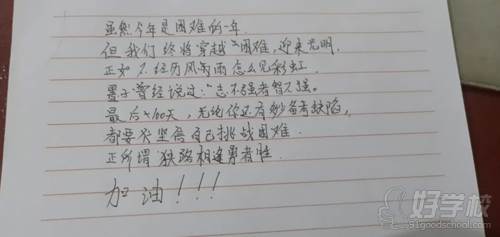 虽然今年是困难的一年.
但我们终将穿越困难,迎来光明.
正如不经历风雨怎么见彩虹.
墨子曾经说过:"志不强者智不达。
最后100天,无论你还有多少备考缺陷,
都要坚信自己挑战困难.
正所谓狭路相逢勇者胜.
加油!!!
好学校